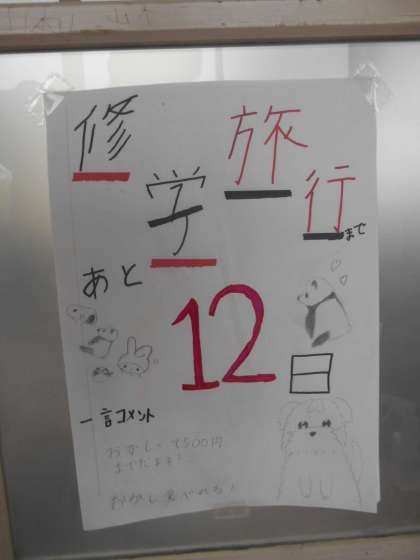 修学旅行まで
あと
12日
一言コメント
おかしって500円
までだよね!
おかし食べれる!